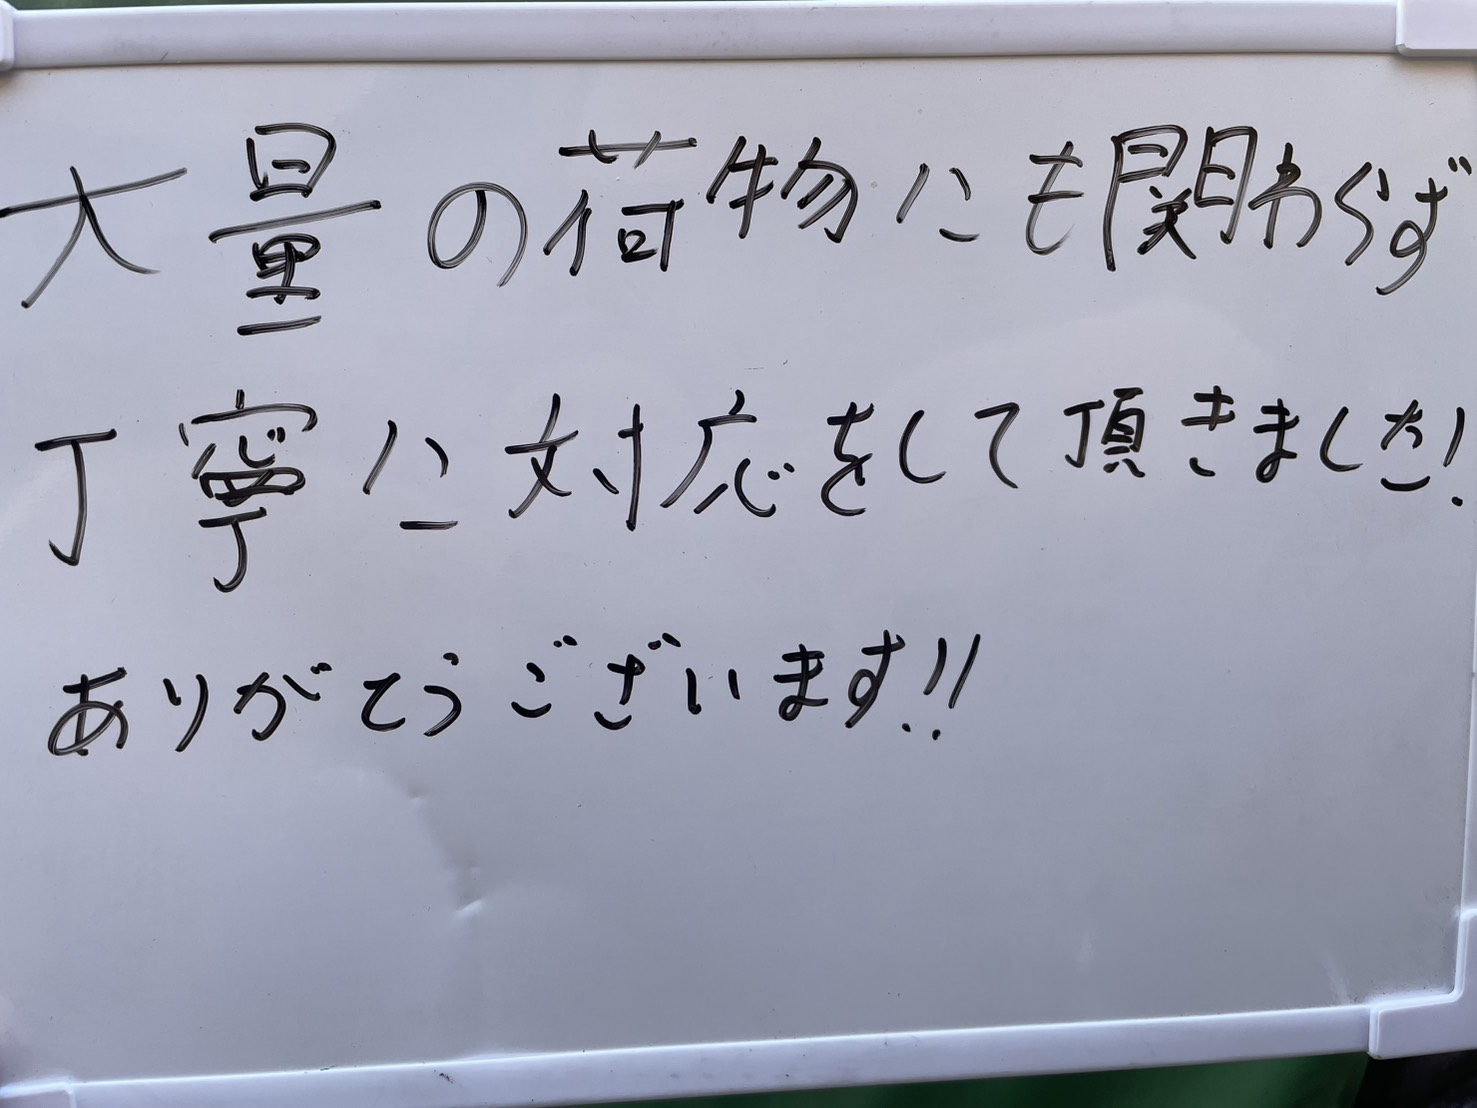 大量の荷物にも関わらず
丁寧に対応をして頂きました!
ありがとうございます!!